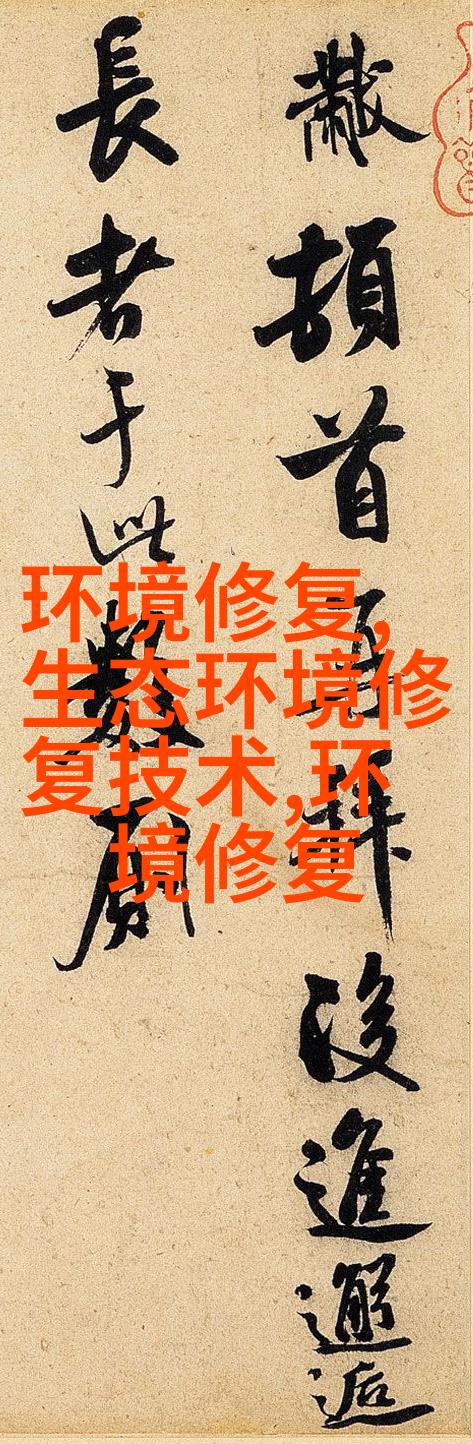 黻頓首再拜後進邂逅
長者于此數廁
环境修复,
生态环境修
复技术,环
境修复